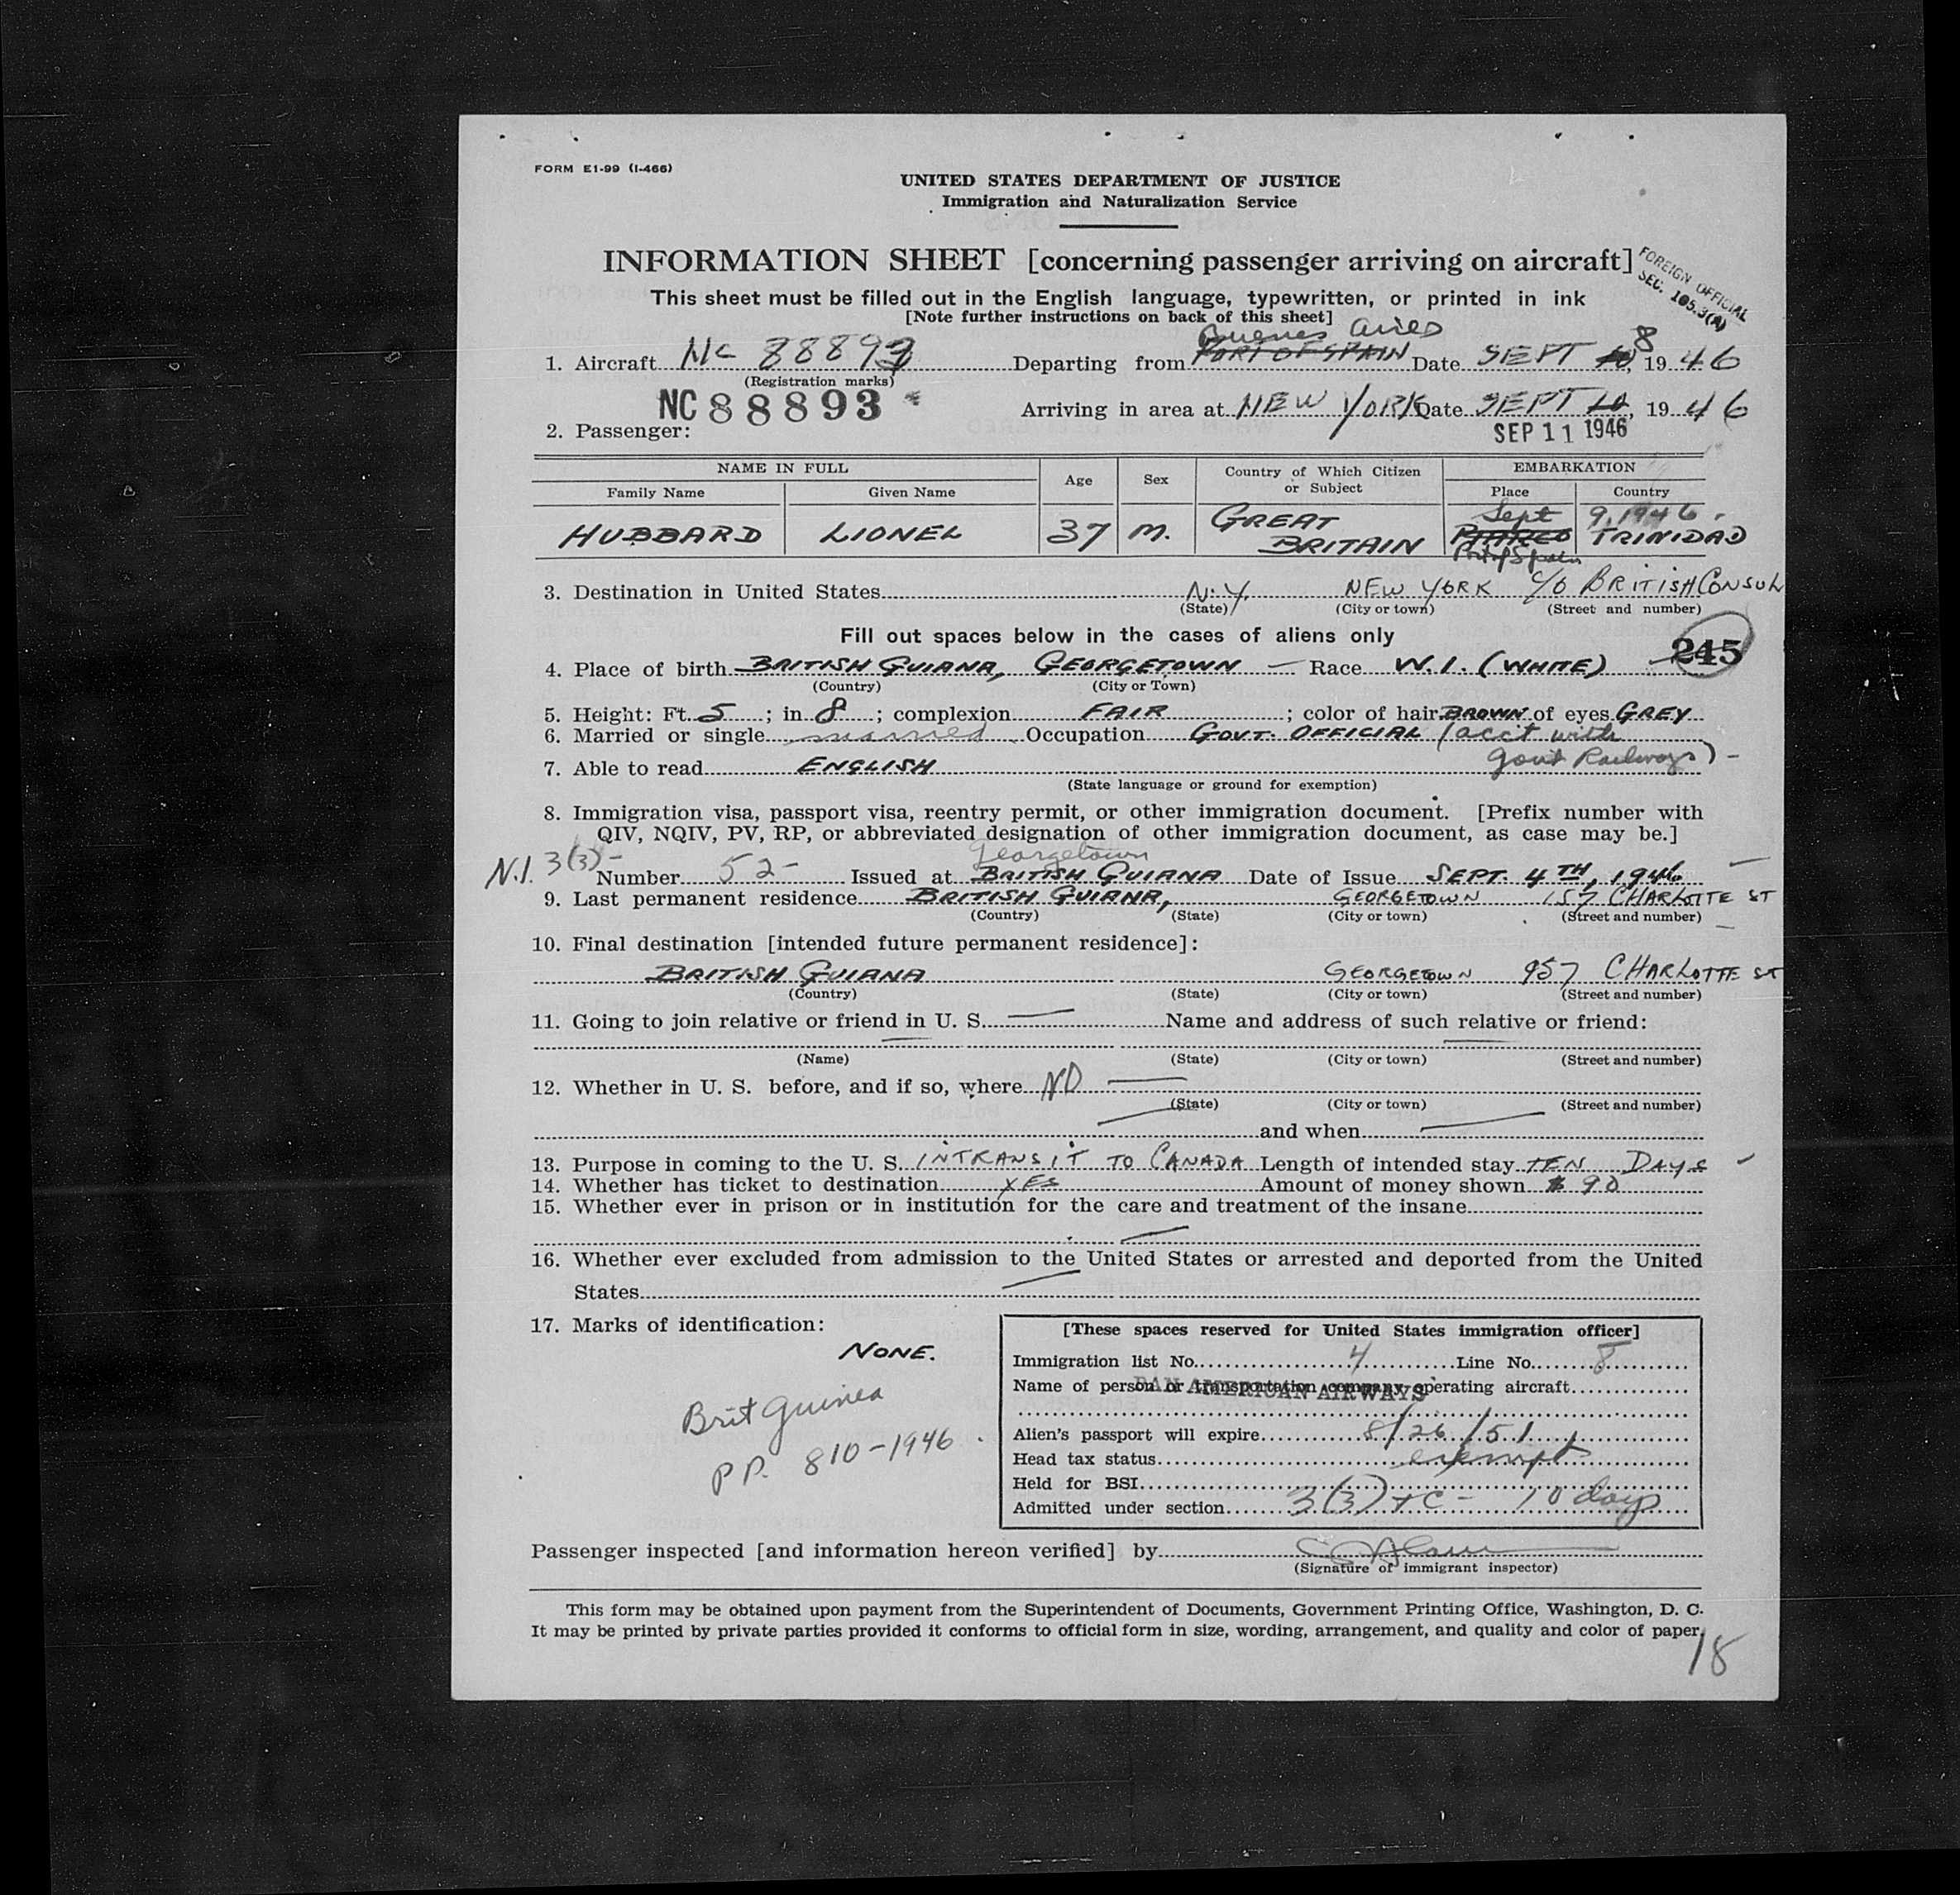 FORM E1-99 (I-466)
UNITED STATES DEPARTMENT OF JUSTICE
Immigration and Naturalization Service
INFORMATION SHEET [concerning passenger arriving on aircraft]
FOREIGN OFFICIAL
SEC. 105.3(A)
This sheet must be filled out in the English language, typewritten, or printed in ink
[Note further instructions on back of this sheet]
Buenos Aires 8
1. Aircraft NC 88893 Departing from PORT OF SPAIN Date SEPT 10, 1946
(Registration marks)
NC 88893 Arriving in area at NEW YORK Date SEPT 10, 1946
2. Passenger: SEP 11 1946
NAME IN FULL Age Sex Country of Which Citizen or Subject EMBARKATION
Family Name Given Name Place Country
Sept 9, 1946
HUBBARD LIONEL 37 M. GREAT BRITAIN PIARCO TRINIDAD
Port of Spain
3. Destination in United States N.Y. NEW YORK C/O BRITISH CONSUL
(State) (City or town) (Street and number)
Fill out spaces below in the cases of aliens only
245
4. Place of birth BRITISH GUIANA, GEORGETOWN — Race W.I. (WHITE)
(Country) (City or Town)
5. Height: Ft. 5; in 8; complexion FAIR; color of hair BROWN of eyes GREY
6. Married or single married Occupation GOVT. OFFICIAL (acct with
7. Able to read ENGLISH Govt Railways) -
(State language or ground for exemption)
8. Immigration visa, passport visa, reentry permit, or other immigration document. [Prefix number with
QIV, NQIV, PV, RP, or abbreviated designation of other immigration document, as case may be.]
Georgetown
N.I. 3(3)- Number 52- Issued at BRITISH GUIANA Date of Issue SEPT. 4TH, 1946
9. Last permanent residence BRITISH GUIANA, GEORGETOWN 157 CHARLOTTE ST
(Country) (State) (City or town) (Street and number)
10. Final destination [intended future permanent residence]:
BRITISH GUIANA GEORGETOWN 957 CHARLOTTE ST
(Country) (State) (City or town) (Street and number)
11. Going to join relative or friend in U. S. — Name and address of such relative or friend:
(Name) (State) (City or town) (Street and number)
12. Whether in U. S. before, and if so, where NO —
(State) (City or town) (Street and number)
and when —
13. Purpose in coming to the U. S. INTRANSIT TO CANADA Length of intended stay TEN DAYS
14. Whether has ticket to destination YES Amount of money shown $90
15. Whether ever in prison or in institution for the care and treatment of the insane
16. Whether ever excluded from admission to the United States or arrested and deported from the United
States
17. Marks of identification:
NONE.
Brit Guinea
P.P. 810-1946
[These spaces reserved for United States immigration officer]
Immigration list No. 4 Line No. 8
Name of person or transportation company operating aircraft
PAN AMERICAN AIRWAYS
Alien's passport will expire 8/26/51
Head tax status exempt
Held for BSI
Admitted under section 3(3) + C - 10 days
Passenger inspected [and information hereon verified] by
(Signature of immigrant inspector)
This form may be obtained upon payment from the Superintendent of Documents, Government Printing Office, Washington, D. C.
It may be printed by private parties provided it conforms to official form in size, wording, arrangement, and quality and color of paper.
18